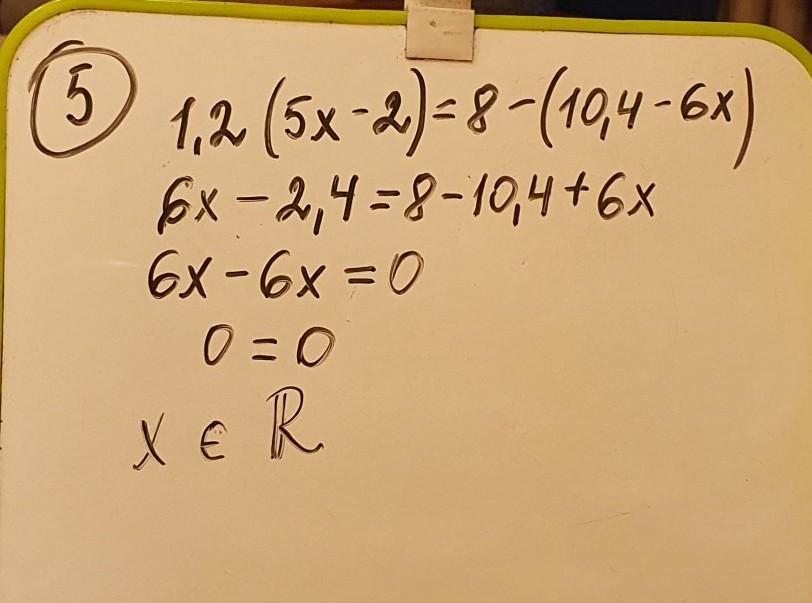 5 1,2(5x-2)=8-(10,4-6x)
6x-2,4=8-10,4+6x
6x-6x=0
0=0
x ∈ ℝ